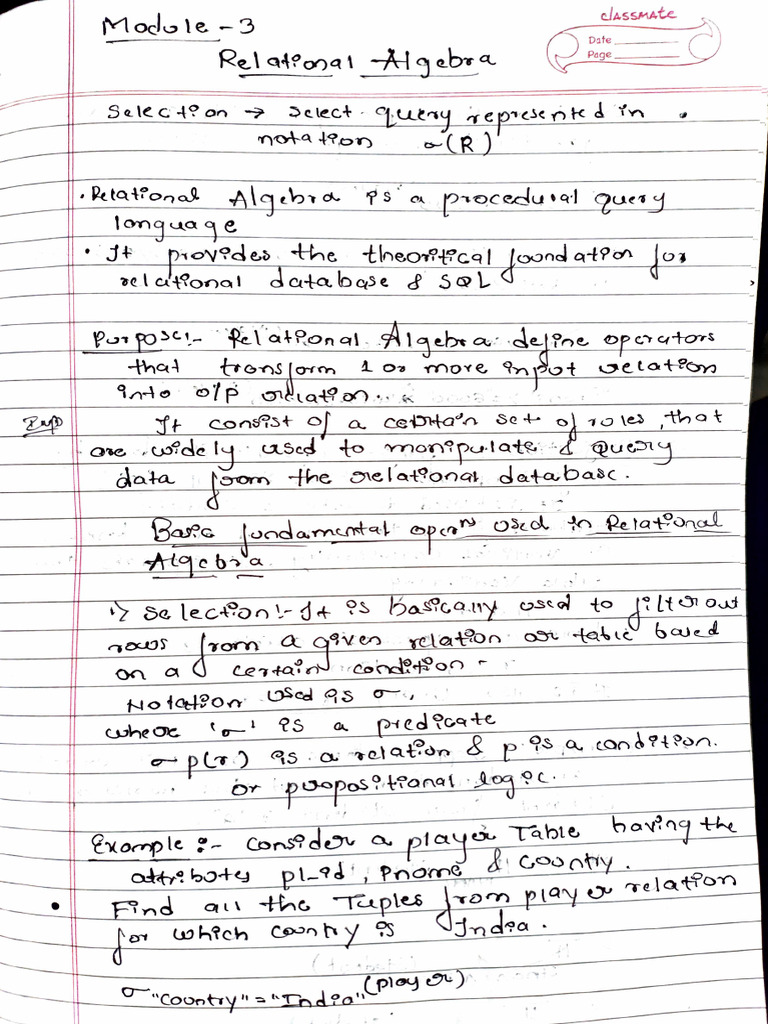 classmate
Date
Page
Module - 3
Relational Algebra
Selection → select query represented in
notation σ(R)
• Relational Algebra is a procedural query
language
• It provides the theoritical foundation for
relational database & SQL
Purpose:- Relational Algebra define operators
that transform 1 or more input relation
into o/p relation.
Imp It consist of a certain set of rules, that
are widely used to manipulate & query
data from the relational database.
Basic fundamental opern used in Relational
Algebra
1) Selection:- It is basically used to filter out
rows from a given relation or table based
on a certain condition -
Notation used is σ,
where 'σ' is a predicate
σ p(r) is a relation & p is a condition.
or propositional logic.
Example :- consider a player Table having the
attributes pl_id, pname & country.
• Find all the Tuples from player relation
for which country is India.
σ "country"="India" (player)